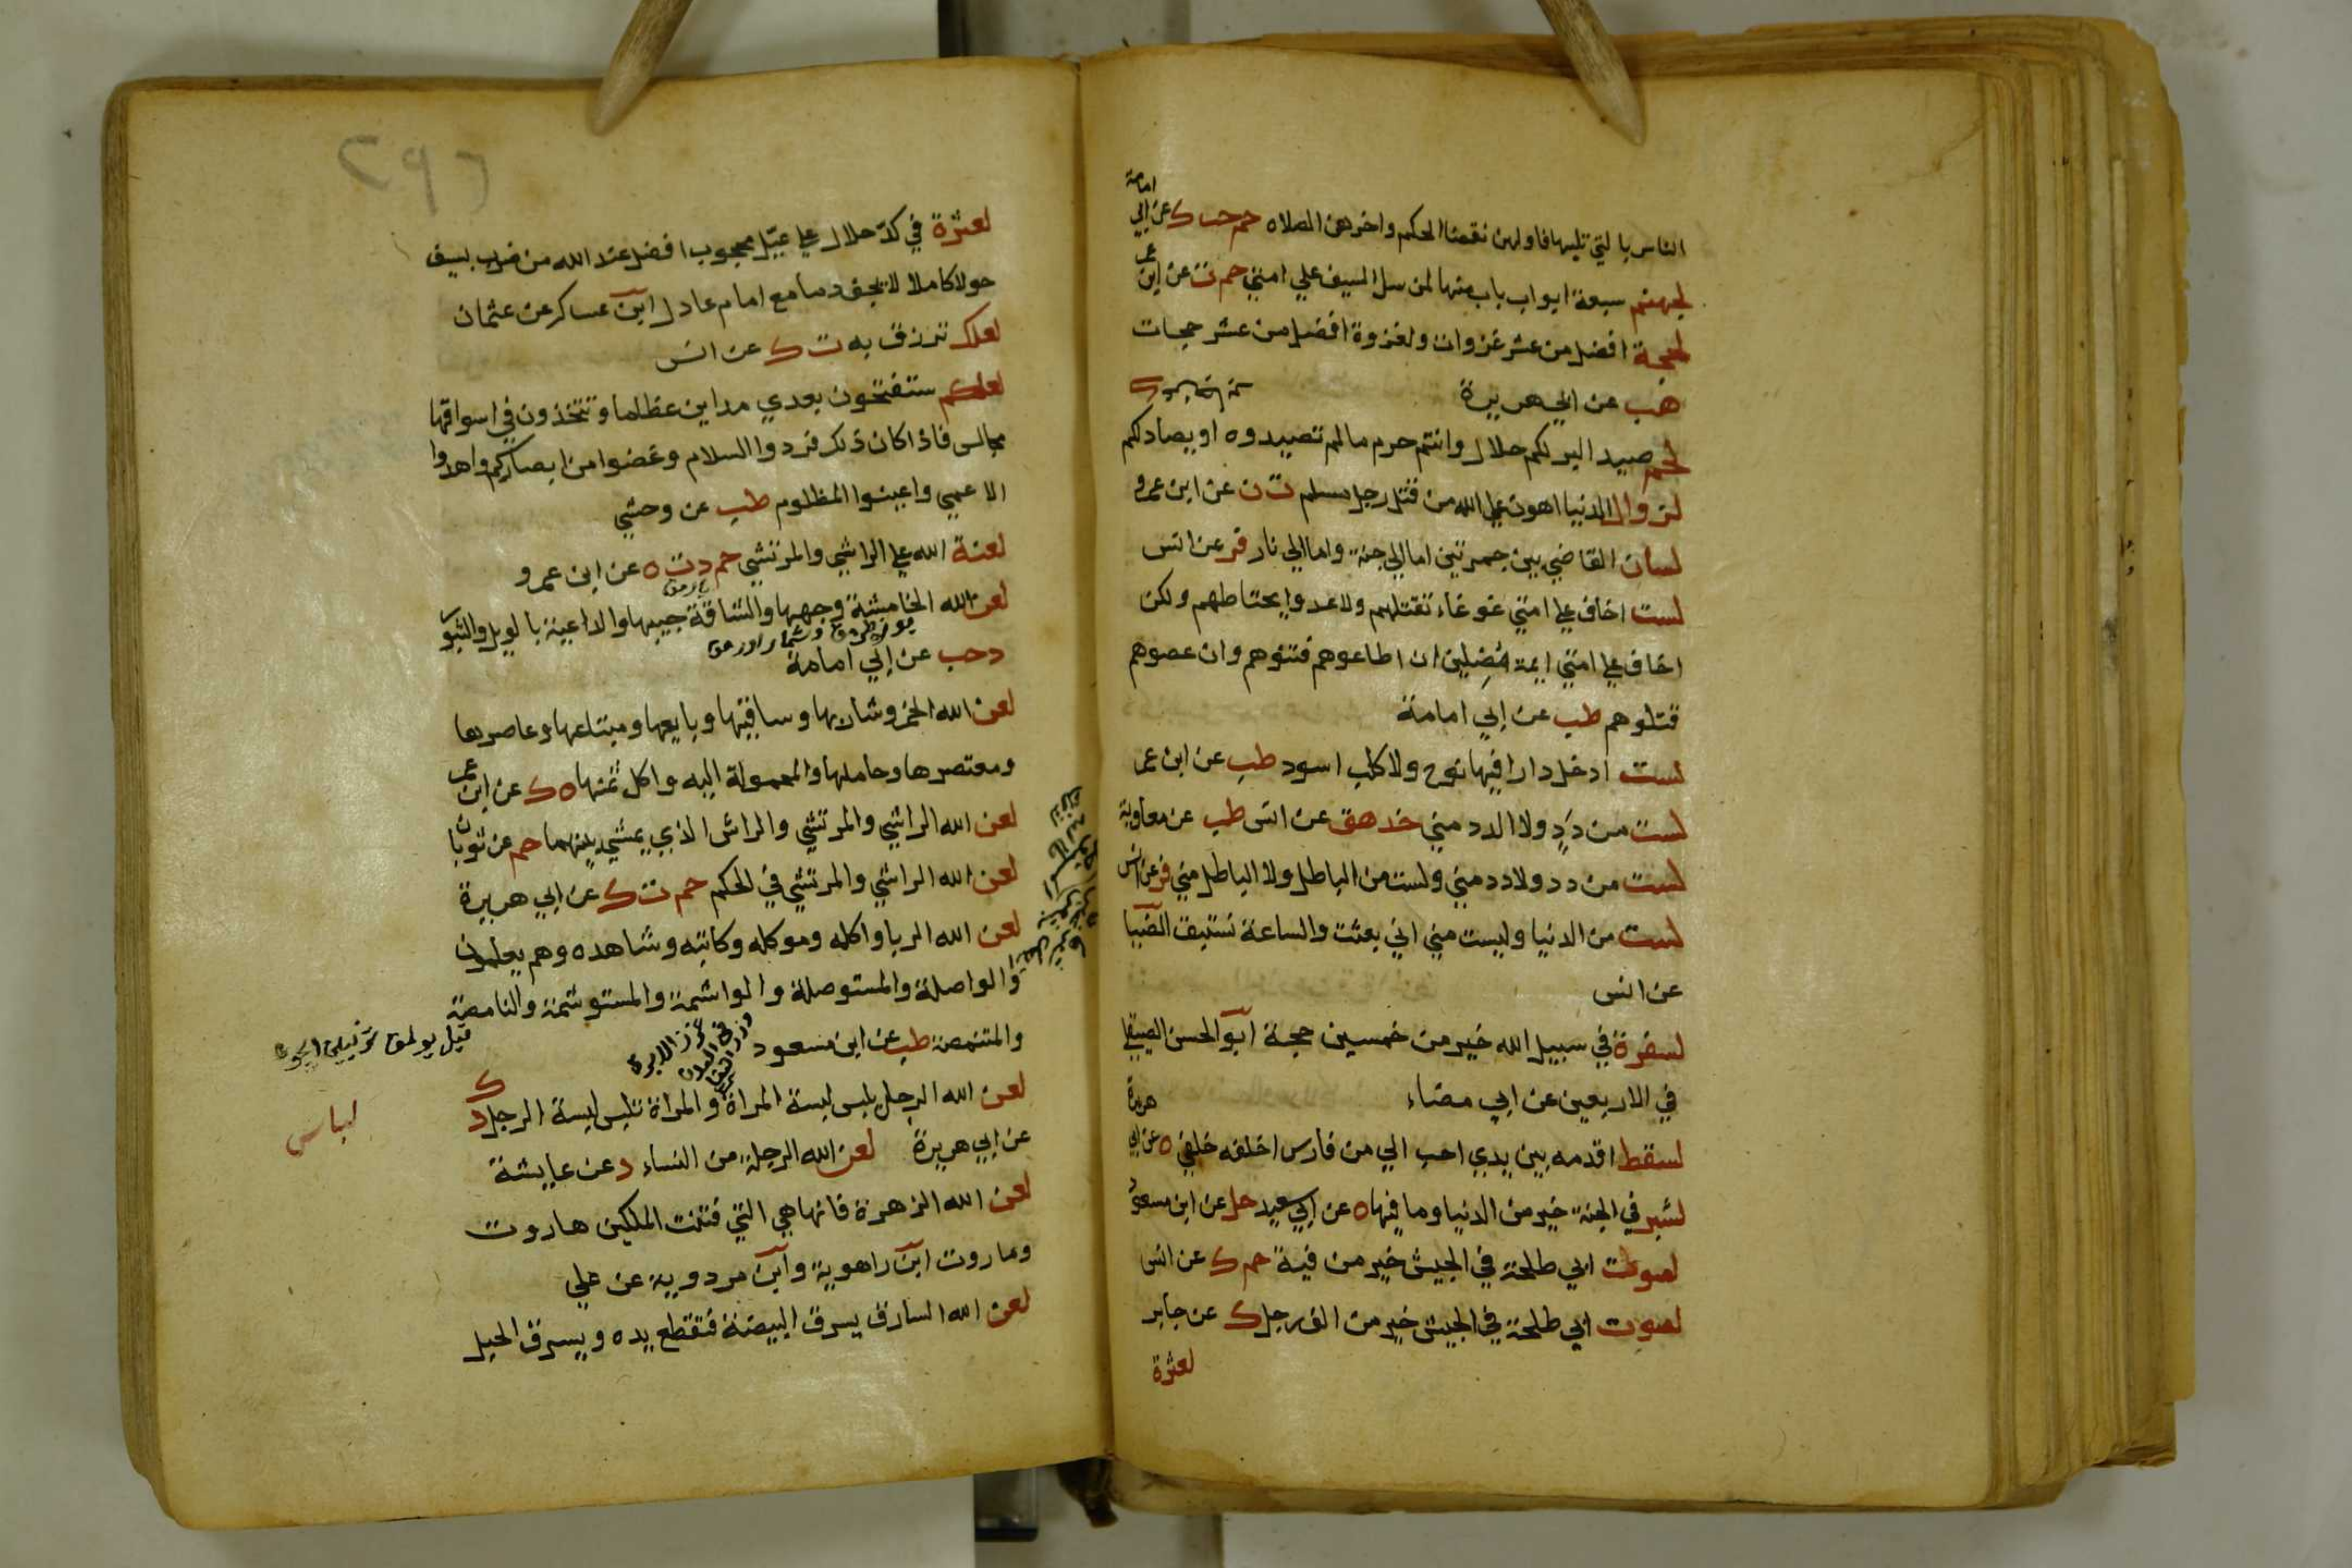 الناس بالتي تليها فاولهن نقضا الحكم واخرهن الصلاه حم حب ك عن ابي امامة
لجهنم سبعة ابواب باب منها لمن سل السيف علي امتي حم ت عن ابن عمر
لحجة افضل من عشر غزوات ولغزوة افضل من عشر حجات
هب عن ابي هريرة
لحم صيد البر لكم حلال وانتم حرم ما لم تصيدوه او يصاد لكم ك
لزوال الدنيا اهون علي الله من قتل رجل مسلم ت ن عن ابن عمرو
لسان القاضي بين جمرتين اما الي جنة واما الي نار فر عن انس
لست اخاف علي امتي غوغاء تقتلهم ولا عدوا يجتاحهم ولكن
اخاف علي امتي ايمة مضلين ان اطاعوهم فتنوهم وان عصوهم
قتلوهم طب عن ابي امامة
لست ادخل دارا فيها نوح ولا كلب اسود طب عن ابن عمر
لست من دد ولا الدد مني خد هق عن انس طب عن معاوية
لست من دد ولا دد مني ولست من الباطل ولا الباطل مني فر عن انس
لست من الدنيا وليست مني اني بعثت والساعة نستبق الضيا
عن انس
لسفرة في سبيل الله خير من خمسين حجة ابو الحسن الصيقلي
في الاربعين عن ابي مضاء
لسقط اقدمه بين يدي احب الي من فارس اخلفه خلفي ه عن ابي هريرة
لشبر في الجنة خير من الدنيا وما فيها ه عن ابي سعيد حل عن ابن مسعود
لصوت ابي طلحة في الجيش خير من فية حم ك عن انس
لصوت ابي طلحة في الجيش خير من الف رجل ك عن جابر
لعثرة
٢٩٦
لعثرة في كد حلال علي عيل محجوب افضل عند الله من ضرب بسيف
حولا كاملا لا يجف دما مع امام عادل ابن عساكر عن عثمان
لعلك ترزق به ت ك عن انس
لعلكم ستفتحون بعدي مداين عظاما وتتخذون في اسواقها
مجالس فاذا كان ذلك فردوا السلام وغضوا من ابصاركم واهدوا
الاعمي واعينوا المظلوم طب عن وحشي
لعنة الله علي الراشي والمرتشي حم د ت ه عن ابن عمرو
لعن الله الخامشة وجهها والشاقة جيبها والداعية بالويل والثبور
ه حب عن ابي امامة
لعن الله الخمر وشاربها وساقيها وبايعها ومبتاعها وعاصرها
ومعتصرها وحاملها والمحمولة اليه واكل ثمنها ه ك عن ابن عمر
لعن الله الراشي والمرتشي والراش الذي يمشي بينهما حم عن ثوبان
لعن الله الراشي والمرتشي في الحكم حم ت ك عن ابي هريرة
لعن الله الربا واكله وموكله وكاتبه وشاهده وهم يعلمون
والواصلة والمستوصلة والواشمة والمستوشمة والنامصة
والمتنمصة طب عن ابن مسعود
لعن الله الرجل يلبس لبسة المراة والمراة تلبس لبسة الرجل د ك
عن ابي هريرة لعن الله الرجلة من النساء د عن عايشة
لعن الله الزهرة فانها هي التي فتنت الملكين هاروت
وماروت ابن راهوية وابن مردوية عن علي
لعن الله السارق يسرق البيضة فتقطع يده ويسرق الحبل
غرز الابرة
لباس